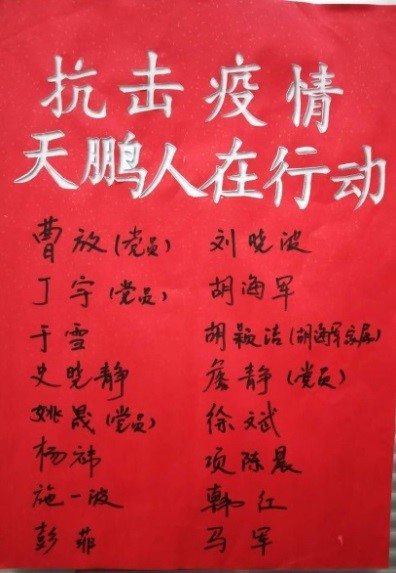 抗击疫情
天鹏人在行动
曹放(党员) 刘晓波
丁宇(党员) 胡海军
于雪 胡颖洁(胡海军家属)
史晓静 詹静(党员)
姚晟(党员) 徐斌
杨祎 项陈晨
施一波 韩红
彭菲 马军